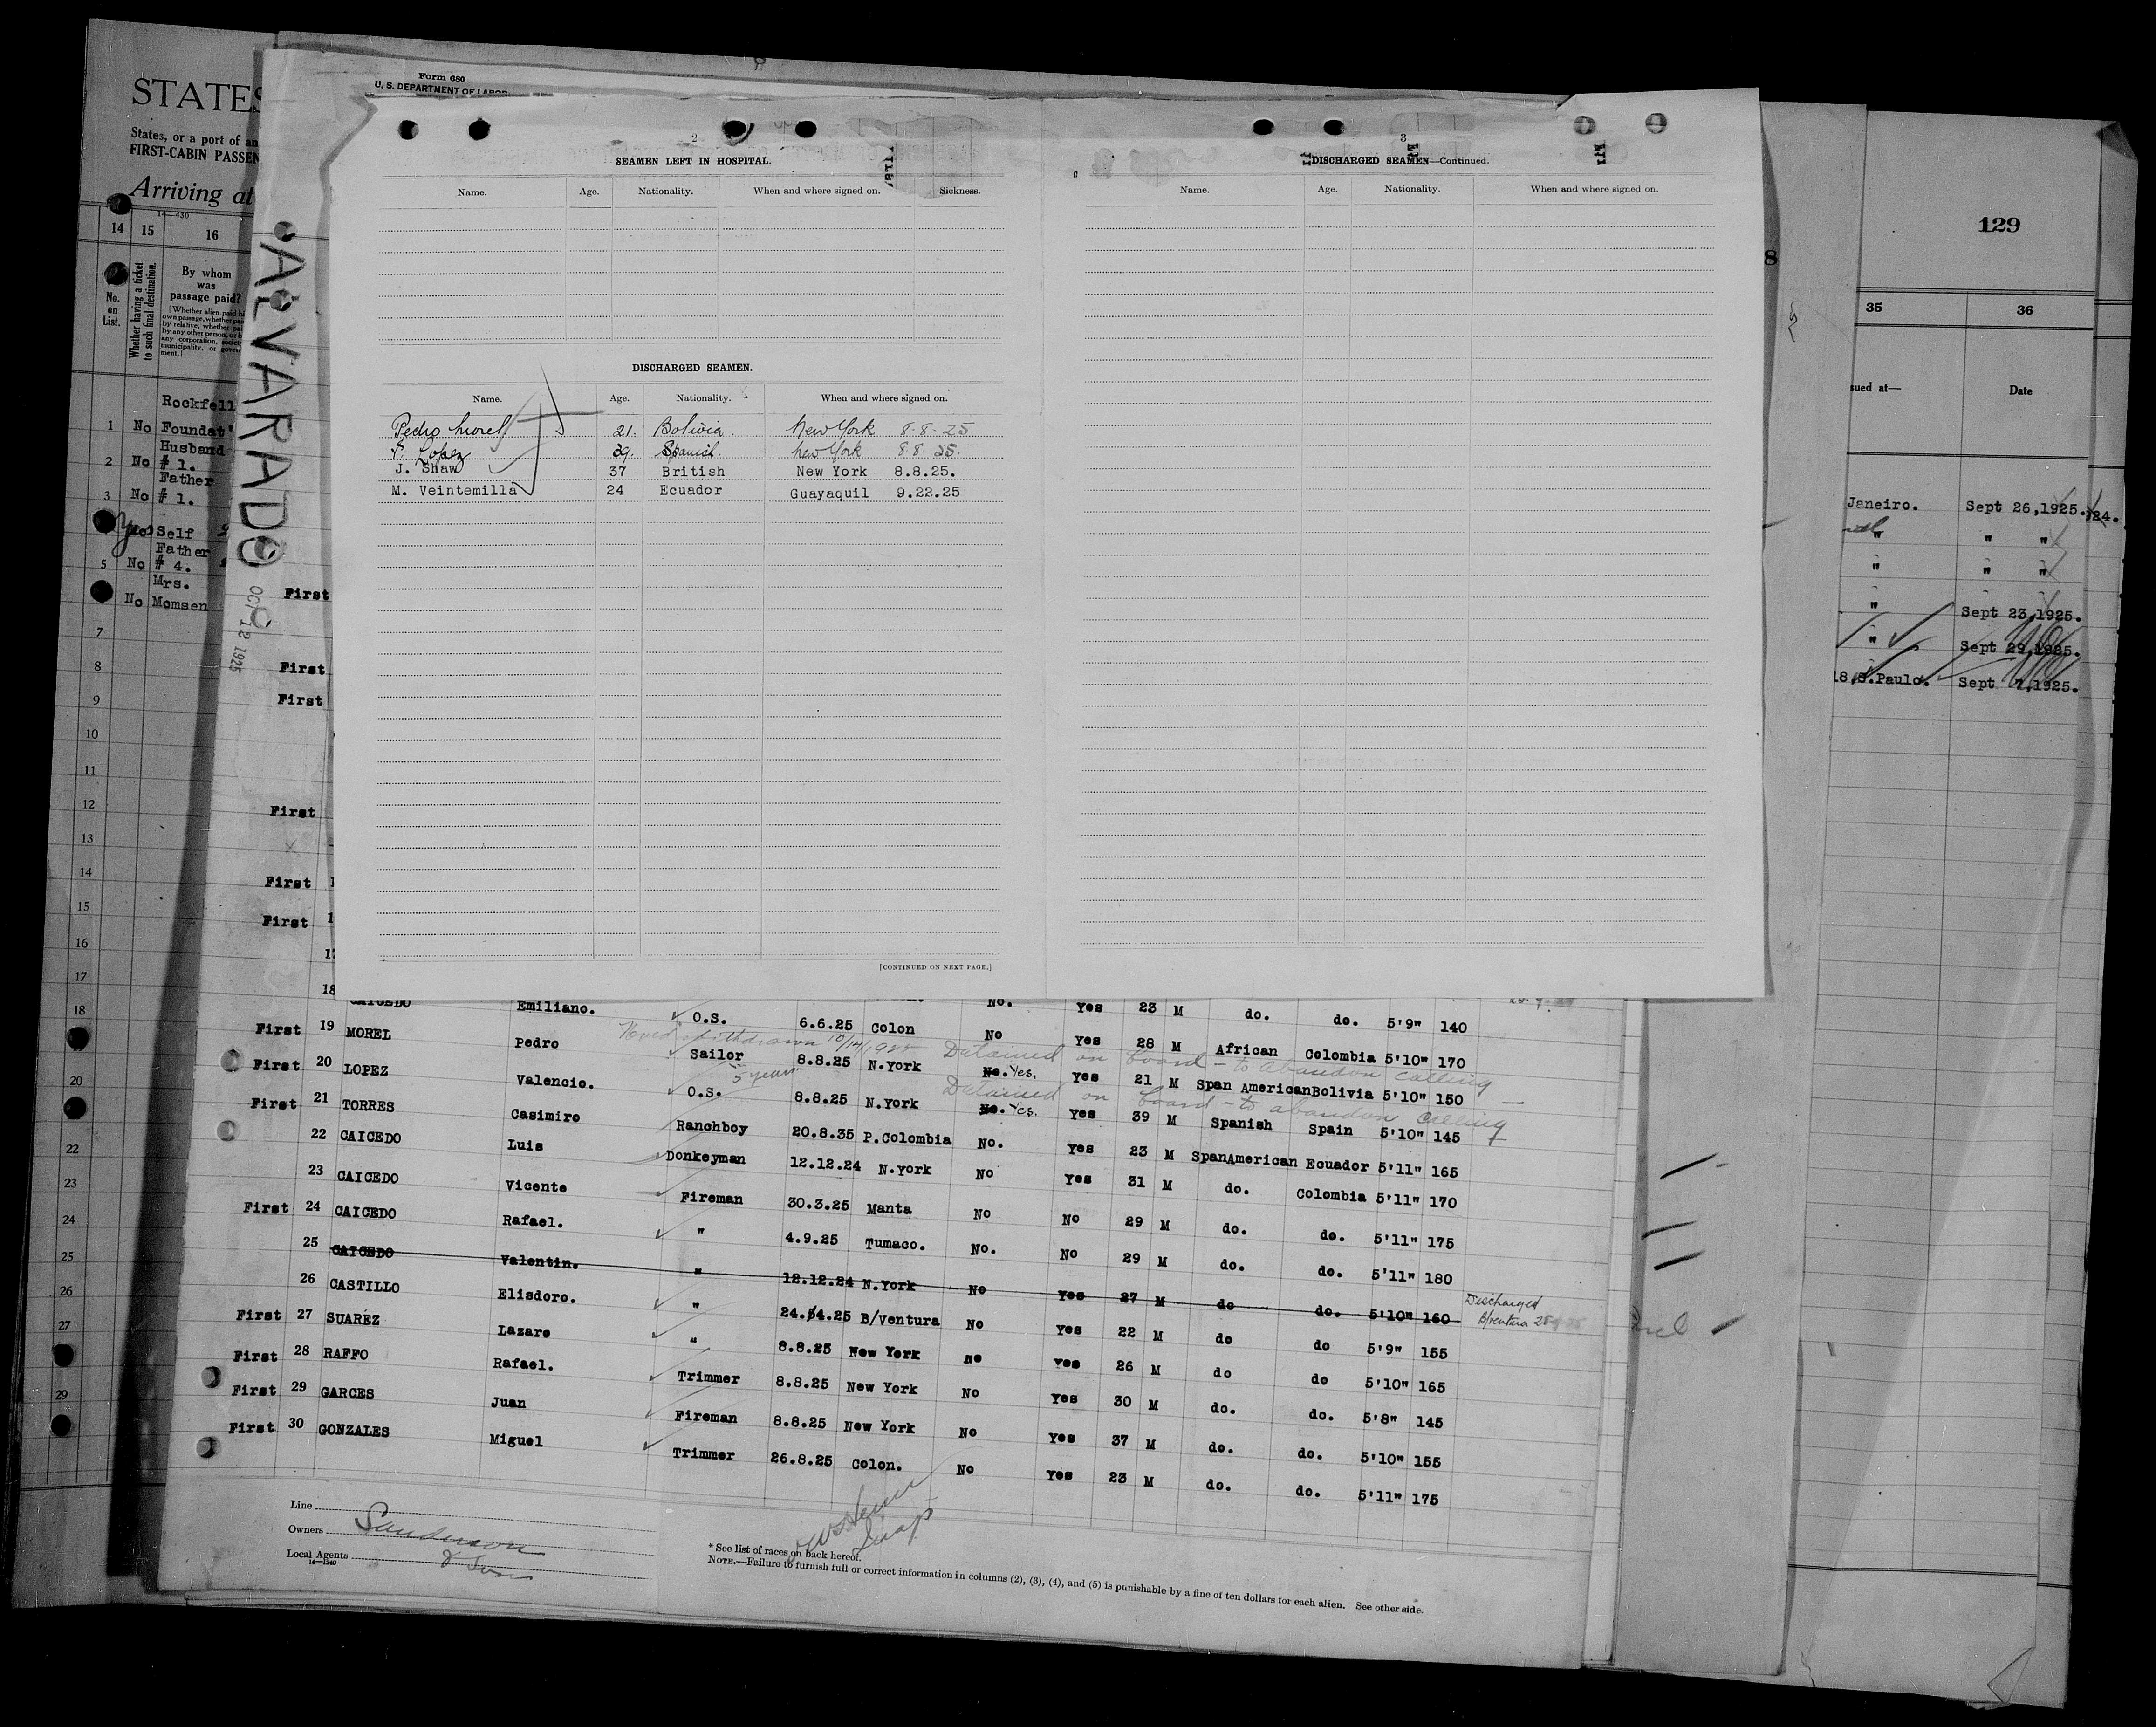 STATES
States, or a port of an
FIRST-CABIN PASSEN
Arriving at
14—430
14 15 16
No. on List.
Whether having a ticket to such final destination.
By whom was passage paid?
Rockfell
1 No Foundat'
Husband
2 No # 1.
Father
3 No # 1.
Yes Self
Father
5 No # 4.
Mrs.
No Momsen
7
8
9
10
11
12
13
14
15
16
17
18
20
22
23
24
25
26
27
29
ALVARADO
OCT 12 1925
Form 680
U. S. DEPARTMENT OF LABOR
2
SEAMEN LEFT IN HOSPITAL.
Name. Age. Nationality. When and where signed on. Sickness.
DISCHARGED SEAMEN.
Name. Age. Nationality. When and where signed on.
Pedro Morel 21. Bolivia. New York 8-8-25
F. Lopez 39. Spanish. New York 8.8.25.
J. Shaw 37 British New York 8.8.25.
M. Veintemilla 24 Ecuador Guayaquil 9.22.25
[CONTINUED ON NEXT PAGE.]
3
DISCHARGED SEAMEN—Continued.
Name. Age. Nationality. When and where signed on.
129
35 36
sued at— Date
Janeiro. Sept 26,1925. 24.
" " "
" " "
" Sept 23,1925.
" Sept 29,1925.
18.S.Paulo. Sept 7,1925.
First
First
First
First
First
First
18 CAICEDO Emiliano. O.S. 6.6.25 Colon No. Yes 23 M do. do. 5'9" 140
First 19 MOREL Pedro Sailor 8.8.25 N.York No Yes 28 M African Colombia 5'10" 170
withdrawn 10/14/1925 Detained on board - to abandon calling
First 20 LOPEZ Valencio. O.S. 8.8.25 N.York No. Yes. Yes 21 M Span American Bolivia 5'10" 150
5 years Detained on board - to abandon calling
First 21 TORRES Casimiro Ranchboy 20.8.35 P.Colombia No. Yes. Yes 39 M Spanish Spain 5'10" 145
22 CAICEDO Luis Donkeyman 12.12.24 N.York No. Yes 23 M SpanAmerican Ecuador 5'11" 165
23 CAICEDO Vicente Fireman 30.3.25 Manta No Yes 31 M do. Colombia 5'11" 170
First 24 CAICEDO Rafael. " 4.9.25 Tumaco. No No 29 M do. do. 5'11" 175
25 CAICEDO Valentin. " 12.12.24 N.York No. No 29 M do. do. 5'11" 180
26 CASTILLO Elisdoro. " 24.4.25 B/Ventura No Yes 27 M do do. 5'10" 160 Discharged B/ventura
First 27 SUAREZ Lazaro " 8.8.25 New York No Yes 22 M do do 5'9" 155
First 28 RAFFO Rafael. Trimmer 8.8.25 New York no Yes 26 M do do 5'10" 165
First 29 GARCES Juan Fireman 8.8.25 New York No Yes 30 M do. do. 5'8" 145
First 30 GONZALES Miguel Trimmer 26.8.25 Colon. No Yes 37 M do. do. 5'10" 155
No Yes 23 M do. do. 5'11" 175
Line
Owners Sanderson
Local Agents & Son
14—1240
* See list of races on back hereof.
NOTE.—Failure to furnish full or correct information in columns (2), (3), (4), and (5) is punishable by a fine of ten dollars for each alien. See other side.